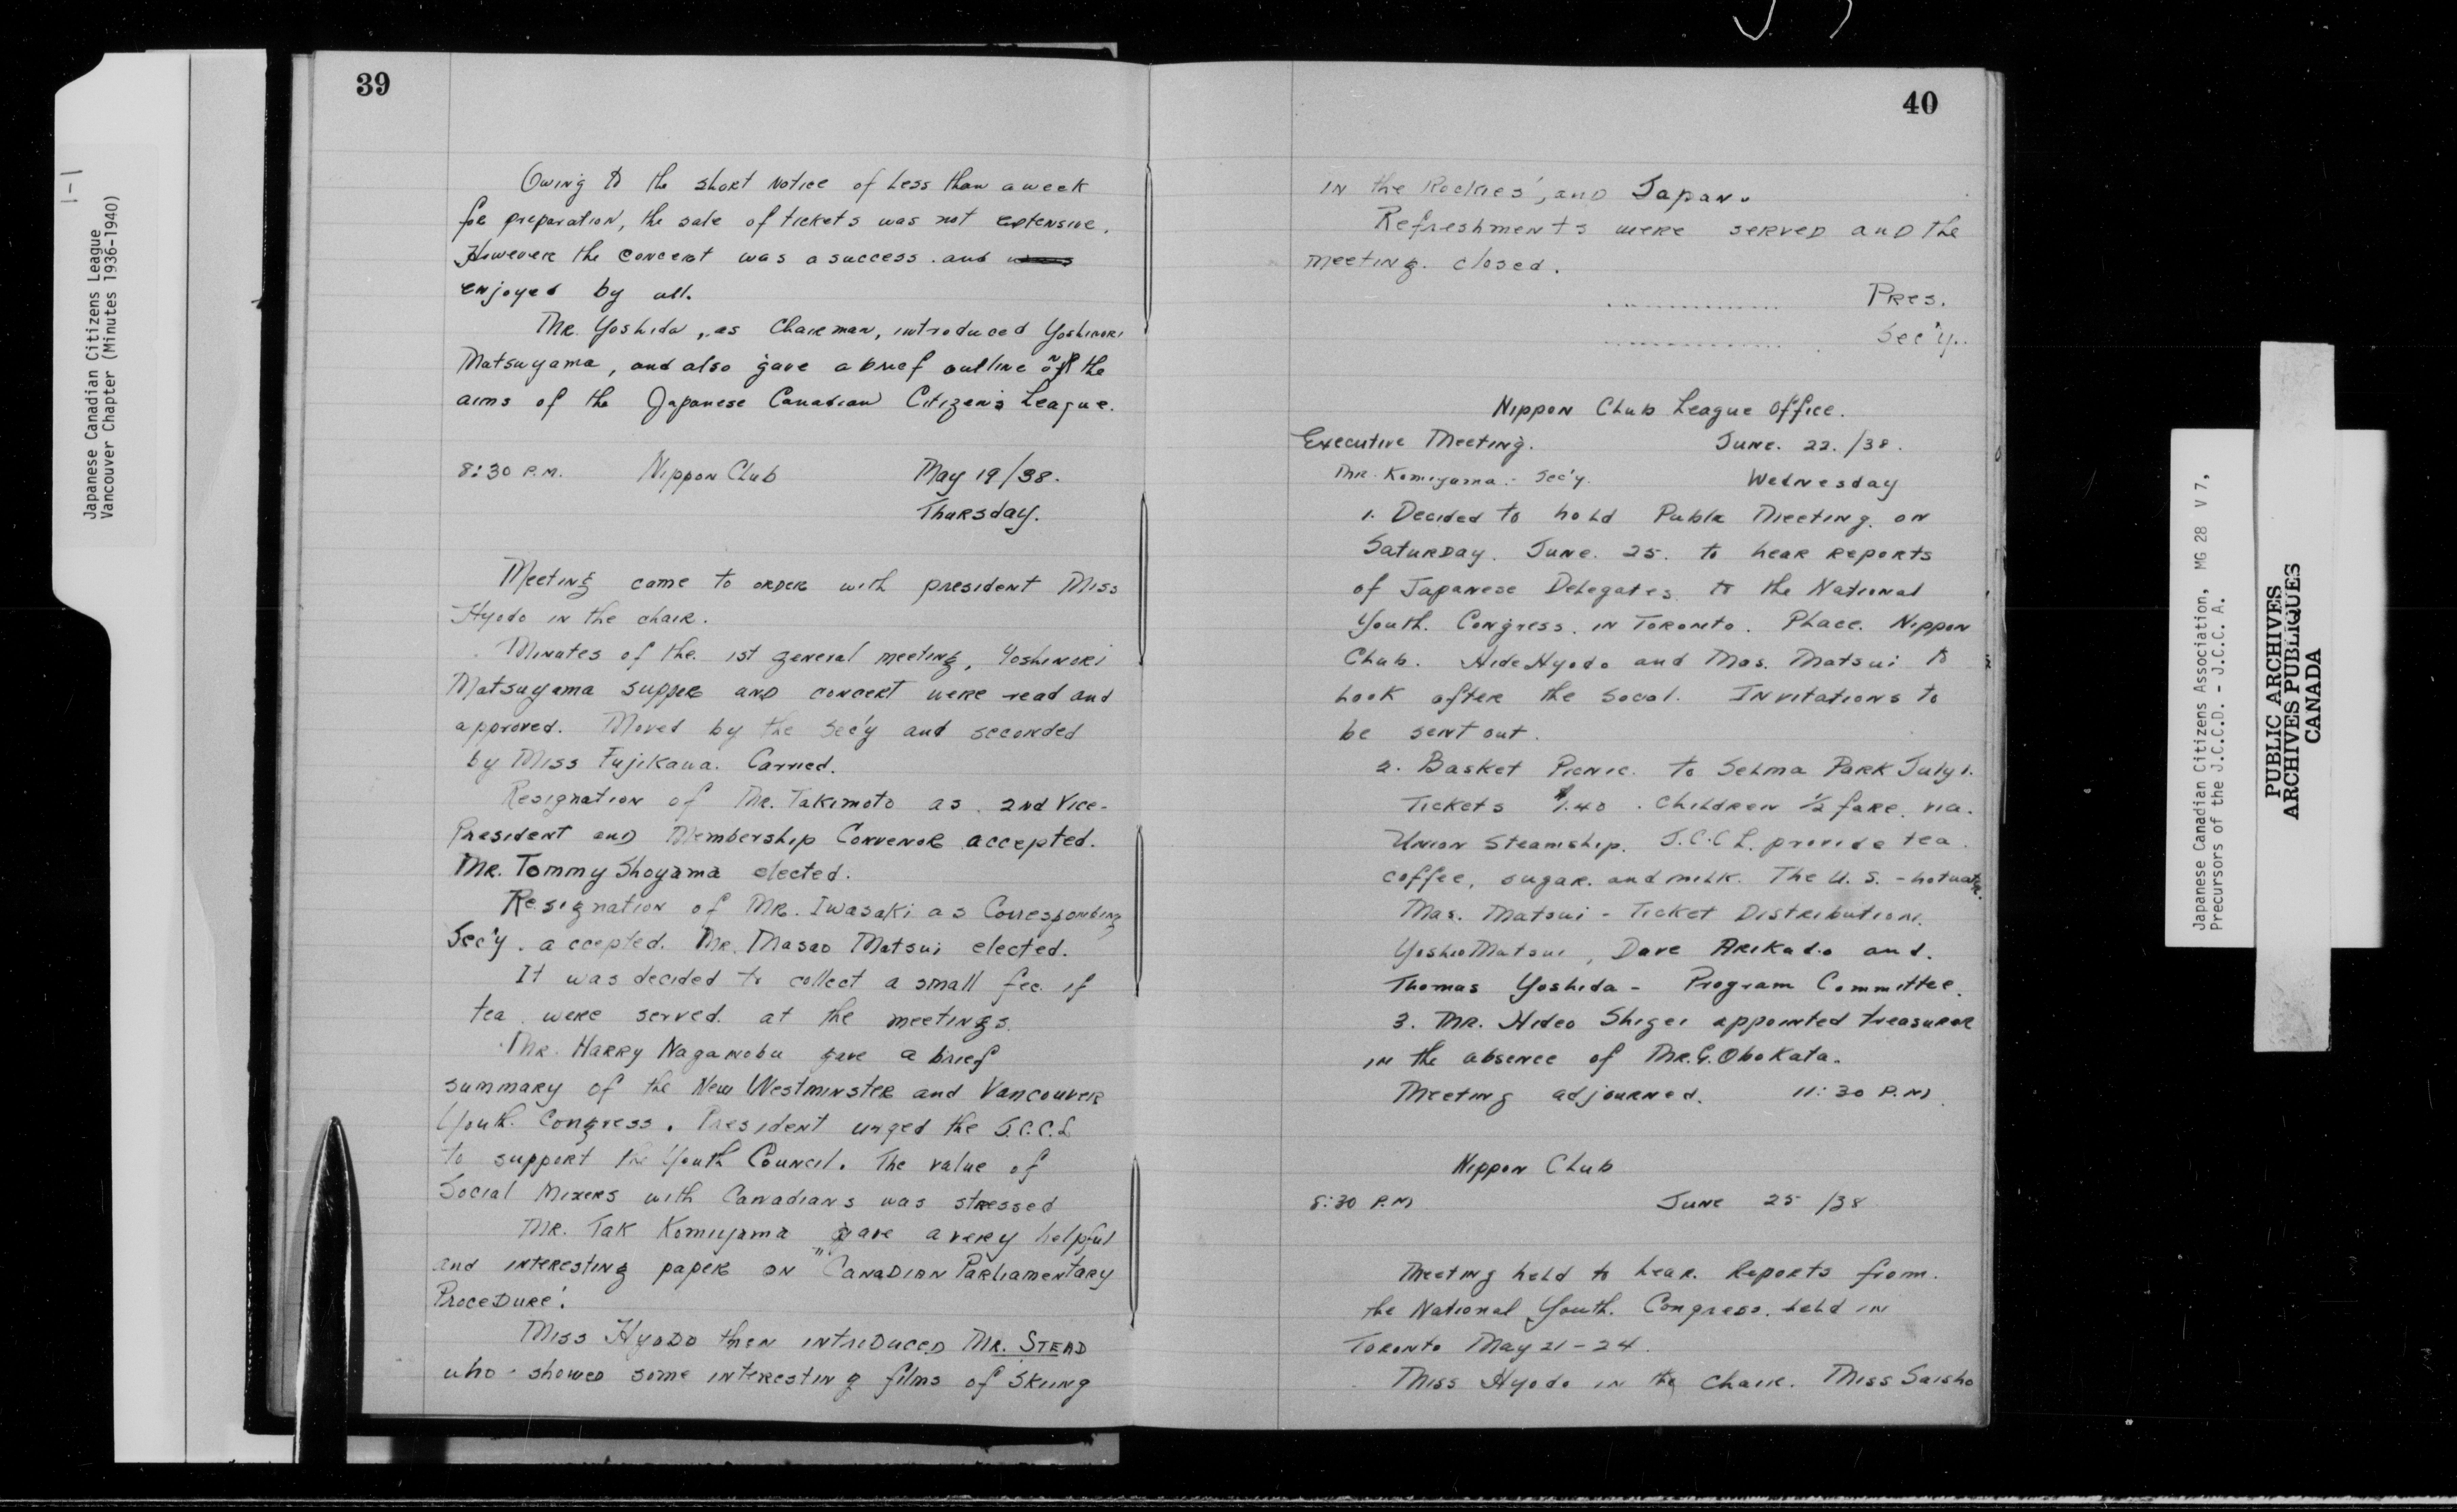 1-1
Japanese Canadian Citizens League
Vancouver Chapter (Minutes 1936-1940)
39
Owing to the short notice of less than a week
for preparation, the sale of tickets was not extensive.
However the concert was a success. and was
enjoyed by all.
Mr. Yoshida, as Chairman, introduced Yoshinori
Matsuyama, and also gave a brief outline of the
aims of the Japanese Canadian Citizens League.
8:30 P.M. Nippon Club May 19/38.
Thursday.
Meeting came to order with president Miss
Hyodo in the chair.
Minutes of the 1st general meeting, Yoshinori
Matsuyama supper and concert were read and
approved. Moved by the Sec'y and seconded
by Miss Fujikawa. Carried.
Resignation of Mr. Takimoto as 2nd Vice-
President and Membership Convenor accepted.
Mr. Tommy Shoyama elected.
Resignation of Mr. Iwasaki as Corresponding
Sec'y. accepted. Mr. Masao Matsui elected.
It was decided to collect a small fee if
tea were served at the meetings.
Mr. Harry Naganobu gave a brief
summary of the New Westminster and Vancouver
Youth Congress. President urged the J.C.C.L
to support the Youth Council. The value of
Social Mixers with Canadians was stressed
Mr. Tak Komiyama gave a very helpful
and interesting paper on "Canadian Parliamentary
Procedure'.
Miss Hyodo then introduced Mr. Stead
who showed some interesting films of 'Skiing
40
in the Rockies', and Japan.
Refreshments were served and the
meeting. closed.
.............. Pres.
.............. Sec'y..
Nippon Club League Office.
Executive Meeting. June. 22. /38.
Mr. Komiyama - Sec'y. Wednesday
1. Decided to hold Public Meeting on
Saturday. June. 25. to hear reports
of Japanese Delegates to the National
Youth. Congress. in Toronto. Place. Nippon
Club. Hide Hyodo and Mas. Matsui to
look after the social. Invitations to
be sent out.
2. Basket Picnic. to Selma Park July 1.
Tickets $1.40. Children 1/2 fare. via.
Union Steamship. J.C.C L. provide tea
coffee, sugar. and milk. The U. S. - hot water.
Mas. Matsui - Ticket Distribution.
Yoshio Matsui, Dave Arikado and.
Thomas Yoshida - Program Committee.
3. Mr. Hideo Shigei appointed treasurer
in the absence of Mr. G. Obokata.
Meeting adjourned. 11:30 P.M.
Nippon Club
8:30 P.M June 25 /38
Meeting held to hear. Reports from.
the National Youth. Congress. held in
Toronto May 21-24.
Miss Hyodo in the Chair. Miss Saisho
Japanese Canadian Citizens Association, MG 28 V 7,
Precursors of the J.C.C.D. - J.C.C. A.
PUBLIC ARCHIVES
ARCHIVES PUBLIQUES
CANADA